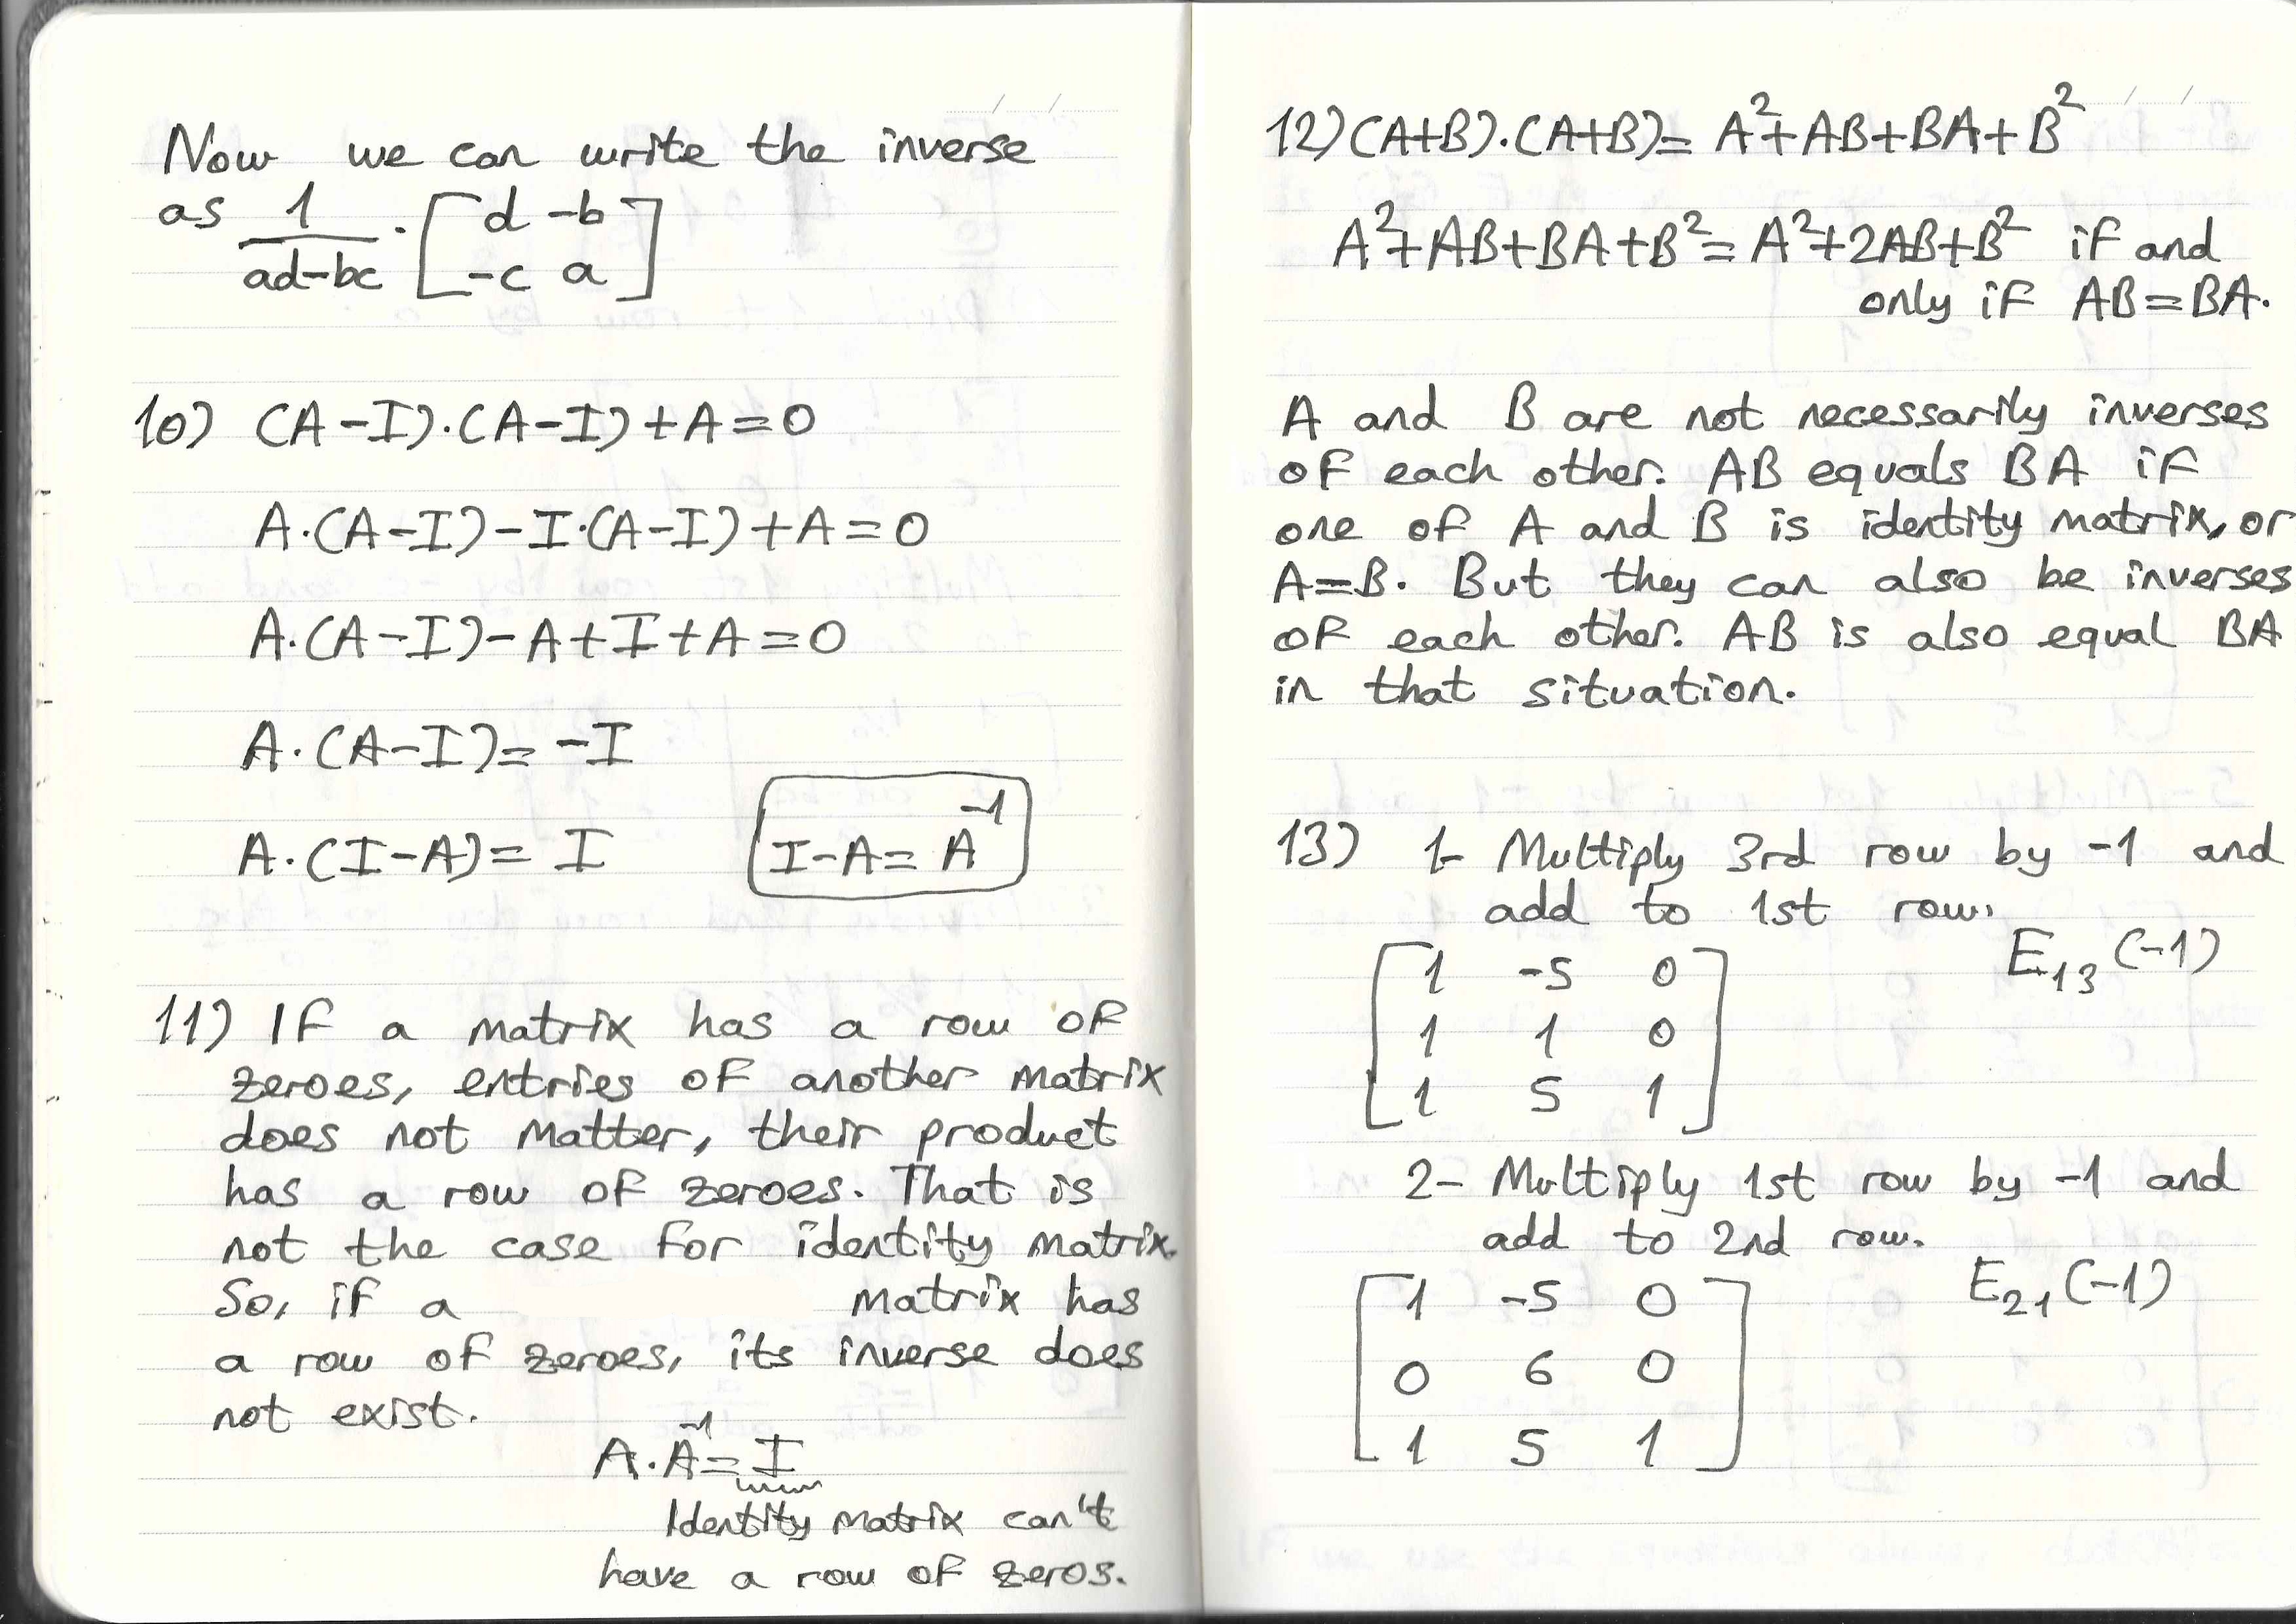 Now we can write the inverse
as 1/(ad-bc) · [d -b
-c a]
10) (A-I).(A-I)+A=0
A.(A-I)-I.(A-I)+A=0
A.(A-I)-A+I+A=0
A.(A-I)=-I
A.(I-A)=I
I-A=A⁻¹
11) If a matrix has a row of
zeroes, entries of another matrix
does not matter, their product
has a row of zeroes. That is
not the case for identity matrix.
So, if a matrix has
a row of zeroes, its inverse does
not exist.
A.A⁻¹=I
Identity matrix can't
have a row of zeros.
12) (A+B).(A+B)=A²+AB+BA+B²
A²+AB+BA+B²=A²+2AB+B² if and
only if AB=BA.
A and B are not necessarily inverses
of each other. AB equals BA if
one of A and B is identity matrix, or
A=B. But they can also be inverses
of each other. AB is also equal BA
in that situation.
13) 1- Multiply 3rd row by -1 and
add to 1st row.
E₁₃(-1)
1 -5 0
1 1 0
1 5 1
2- Multiply 1st row by -1 and
add to 2nd row.
E₂₁(-1)
1 -5 0
0 6 0
1 5 1